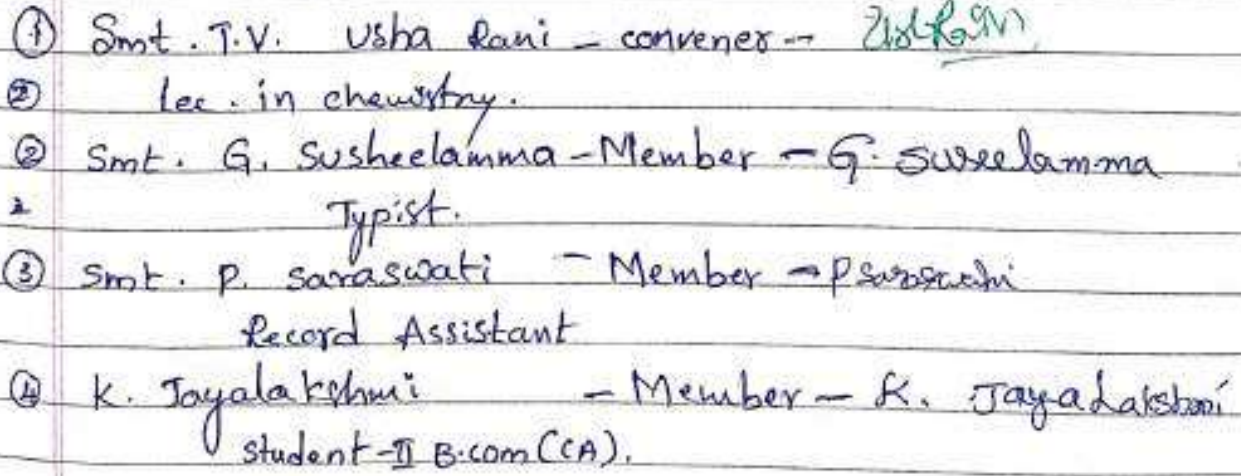 ① Smt. T.V. Usha Rani - convener -
② lec. in chemistry.
② Smt. G. Susheelamma - Member - G. Suseelamma
2 Typist.
③ Smt. P. Saraswati - Member - P Saraswathi
Record Assistant
④ K. Jayalakshmi - Member - K. JayaLakshmi
Student - II B.com (CA).